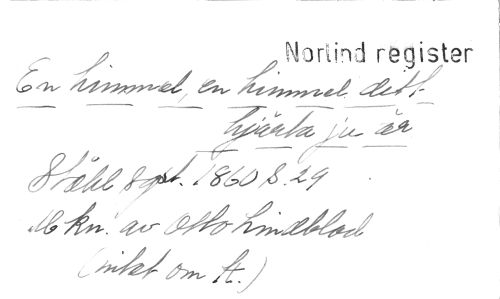 Norlind register
En himmel, en himmel ditt
hjärta ju är
Ståhl 8 qt. 1860 S. 29
Mkn. av Otto Lindblad
(intet om ft.)